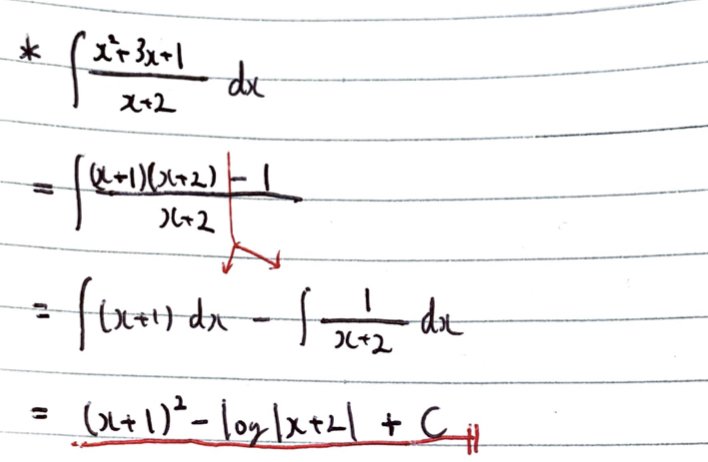 * ∫ (x²+3x+1)/(x+2) dx
= ∫ ((x+1)(x+2) - 1)/(x+2)
= ∫ (x+1) dx - ∫ 1/(x+2) dx
= (x+1)² - log|x+2| + C